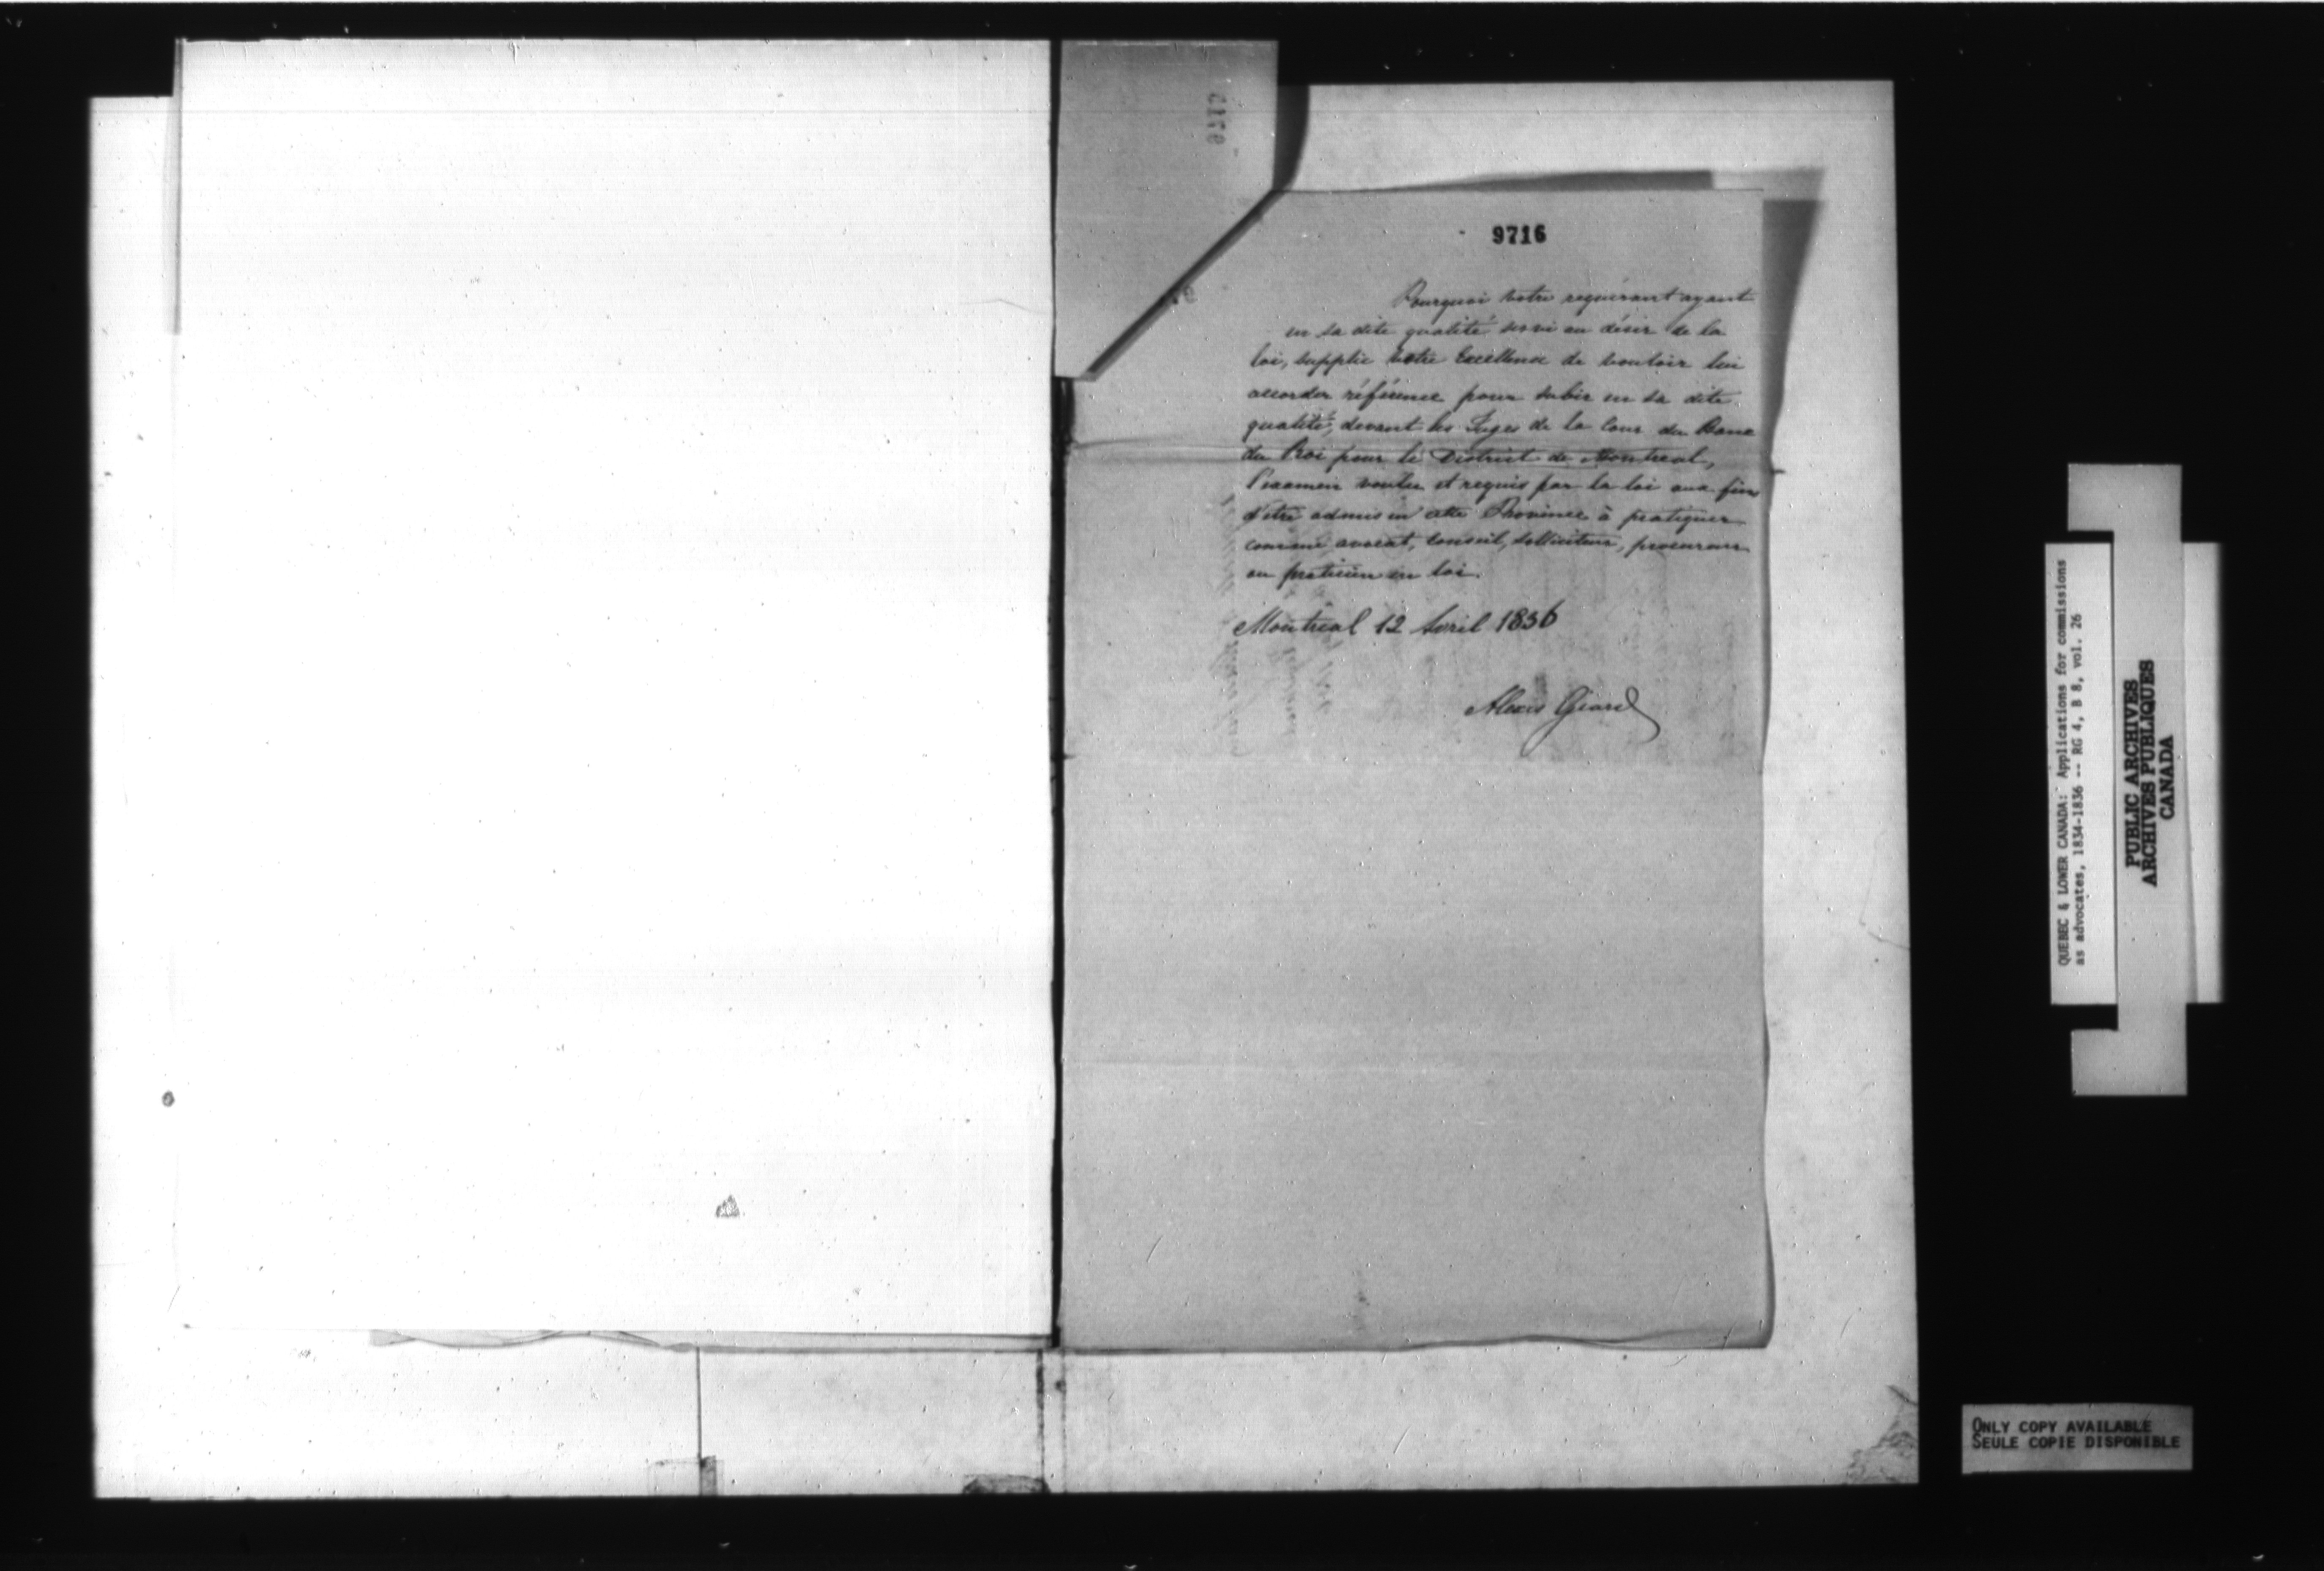 9716
Pourquoi votre requérant ayant
en sa dite qualité servi au désir de la
loi, supplie votre Excellence de vouloir lui
accorder référence pour subir en sa dite
qualité, devant les Juges de la Cour du Banc
du Roi pour le District de Montreal,
l'examen voulu et requis par la loi aux fins
d'être admis en cette Province à pratiquer
comme avocat, conseil, solliciteur, procureur
ou praticien en loi.
Montreal 12 Avril 1836
Alexis Girard
QUEBEC & LOWER CANADA: Applications for commissions
as advocates, 1834-1836 -- RG 4, B 8, vol. 26
PUBLIC ARCHIVES
ARCHIVES PUBLIQUES
CANADA
ONLY COPY AVAILABLE
SEULE COPIE DISPONIBLE